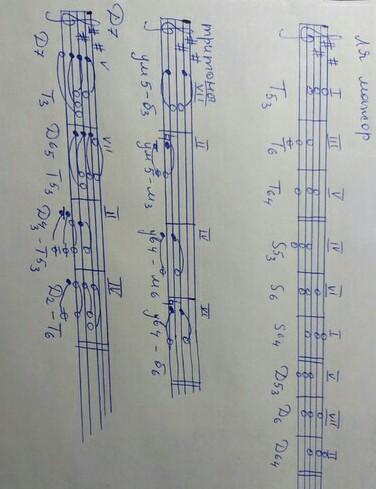 Ля мажор
I III V IV VI I V VII II
T53 T6 T64 S53 S6 S64 Д53 Д6 Д64
тритоны
VII II IV VI
ум5-б3 ум5-м3 ув4-м6 ув4-б6
Д7
V VII II IV
Д7 T3 Д65 T53 Д43-T53 Д2-T6